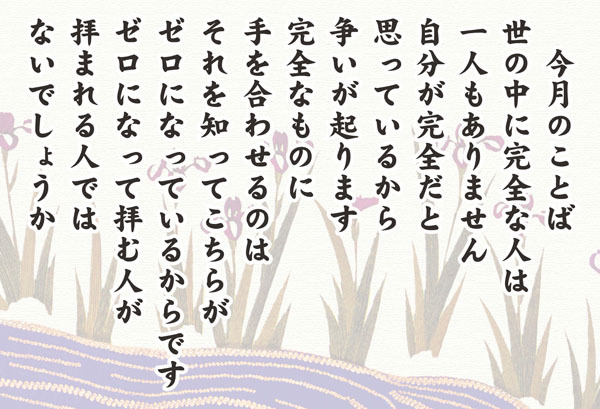 今月のことば
世の中に完全な人は
一人もありません
自分が完全だと
思っているから
争いが起ります
完全なものに
手を合わせるのは
それを知ってこちらが
ゼロになっているからです
ゼロになって拝む人が
拝まれる人では
ないでしょうか